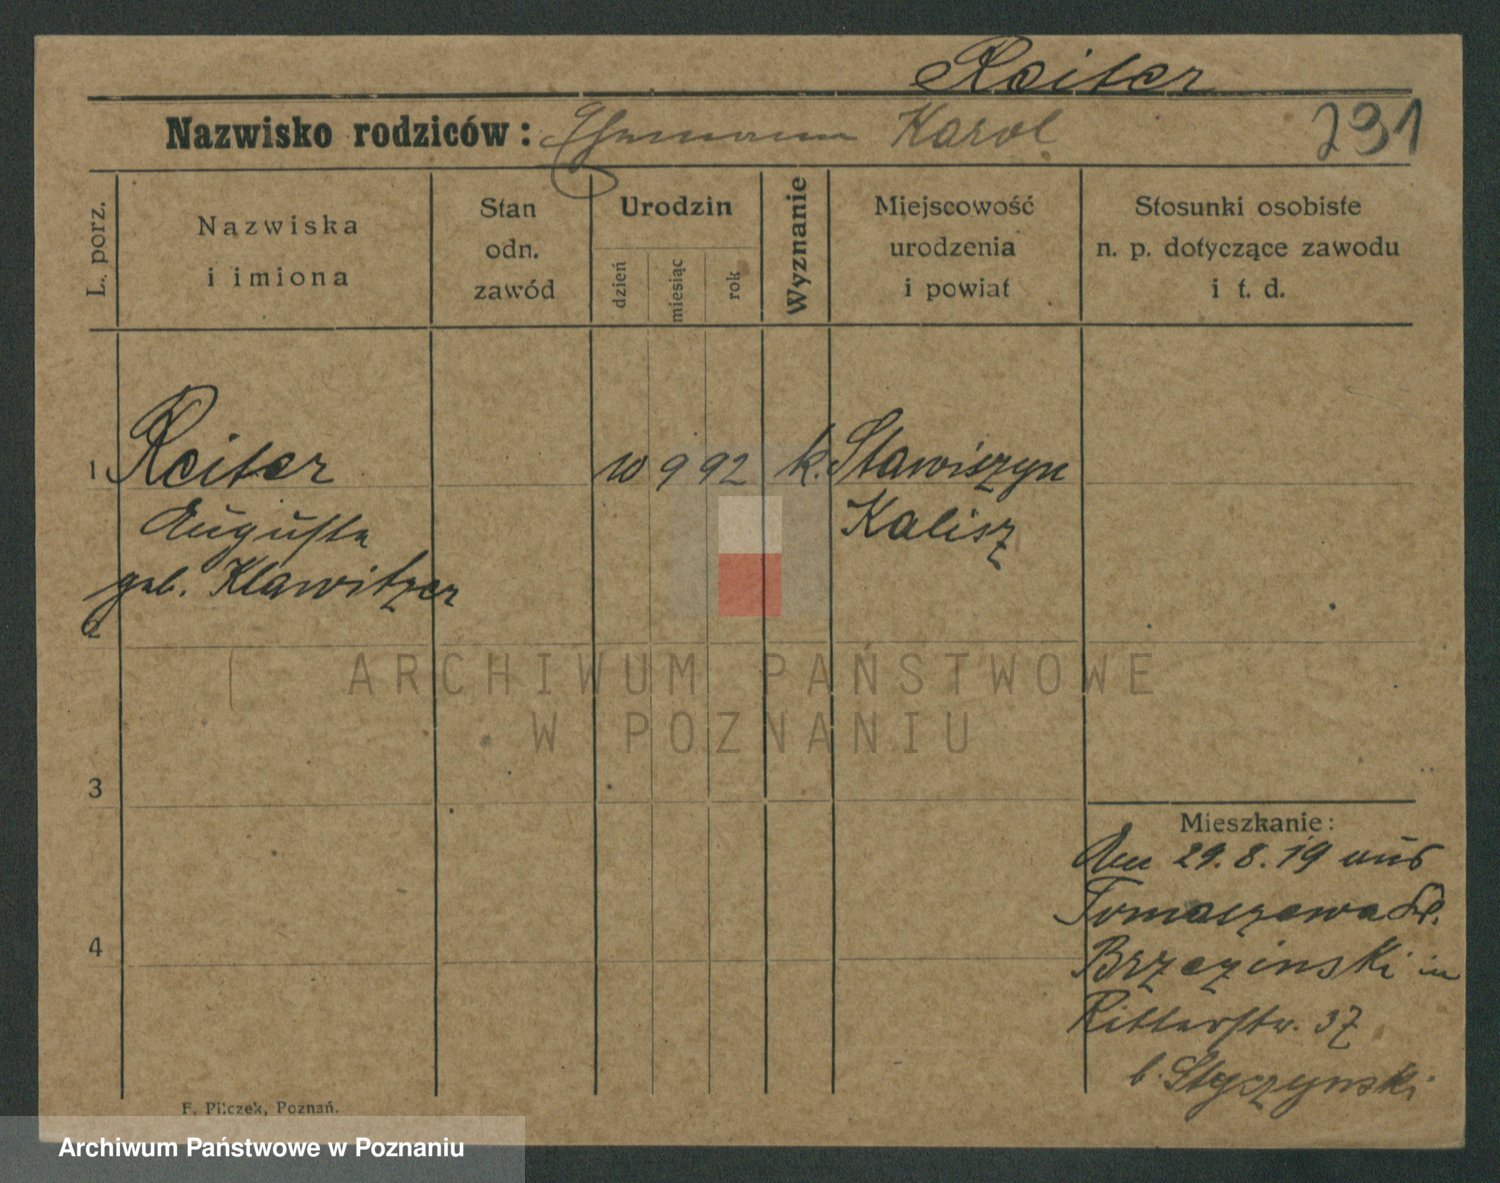 Reiter
Nazwisko rodziców: Ehemann Karol 291
L. porz.
Nazwiska
i imiona
Stan
odn.
zawód
Urodzin
dzień
miesiąc
rok
Wyznanie
Miejscowość
urodzenia
i powiat
Stosunki osobiste
n. p. dotyczące zawodu
i t. d.
1 Reiter 10 9 92 k. Stawiszyn
Auguste Kalisz
geb. Klawitzer
2
3
4
Mieszkanie:
Am 29.8.19 aus
Tomaszewo
Brzezinski in
Ritterstr. 37
b. Styczynski
F. Pilczek, Poznań.
ARCHIWUM PAŃSTWOWE
W POZNANIU
Archiwum Państwowe w Poznaniu